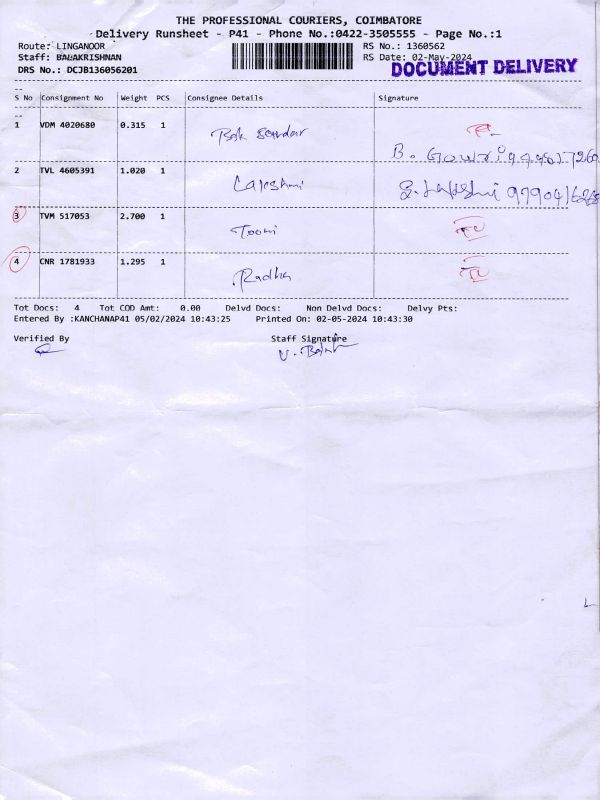 THE PROFESSIONAL COURIERS, COIMBATORE
Delivery Runsheet - P41 - Phone No.:0422-3505555 - Page No.:1
Route: LINGANOOR RS No.: 1360562
Staff: BALAKRISHNAN RS Date: 02-May-2024
DRS No.: DCJB136056201 DOCUMENT DELIVERY
S No Consignment No Weight PCS Consignee Details Signature
1 VDM 4020680 0.315 1
B. Gowri
2 TVL 4605391 1.020 1
3 TVM 517053 2.700 1
4 CNR 1781933 1.295 1 Radha
Tot Docs: 4 Tot COD Amt: 0.00 Delvd Docs: Non Delvd Docs: Delvy Pts:
Entered By :KANCHANAP41 05/02/2024 10:43:25 Printed On: 02-05-2024 10:43:30
Verified By Staff Signature